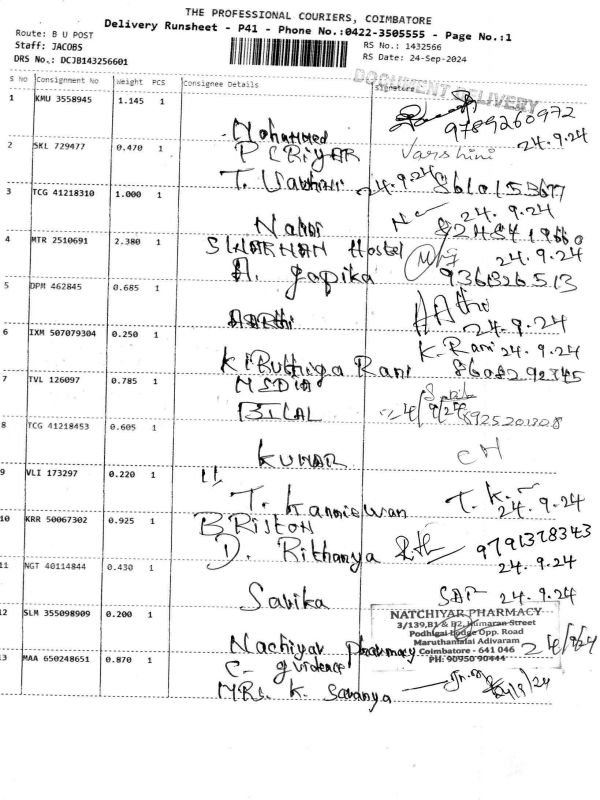 THE PROFESSIONAL COURIERS, COIMBATORE
Delivery Runsheet - P41 - Phone No.:0422-3505555 - Page No.:1
Route: B U POST
RS No.: 1432566
Staff: JACOBS
RS Date: 24-Sep-2024
DRS No.: DCJB143256601
DOCUMENT DELIVERY
S No Consignment No Weight PCS Consignee Details Signature
1 KMU 3558945 1.145 1
Mohammed 9789260972
2 SKL 729477 0.470 1
PERIYAR Varshini 24.9.24
3 TCG 41218310 1.000 1
T. 24.9.24 8610153677
24.9.24
4 MTR 2510691 2.380 1
Hostel 24.9.24
A. gopika 9361326513
5 DPM 462845 0.685 1
24.9.24
6 IXM 507079304 0.250 1
K. Rani 24.9.24
Kiruthiga Rani 8608292345
7 TVL 126097 0.785 1
BILAL
8 TCG 41218453 0.605 1
KUMAR
9 VLI 173297 0.220 1
T. T. K.
24.9.24
10 KRR 50067302 0.925 1
BRISTON
D. Rithanya 9791378343
24.9.24
11 NGT 40114844 0.430 1
Savika 24.9.24
12 SLM 355098909 0.200 1
NATCHIYAR PHARMACY
3/139,B1 & B2, Kumaran Street
Podhigai Lodge Opp. Road
Maruthamalai Adivaram
Coimbatore - 641 046
PH: 90950 90444
Nachiyar pharmacy 24/9/24
13 MAA 650248651 0.870 1
MRs. K. Saranya 24/9/24